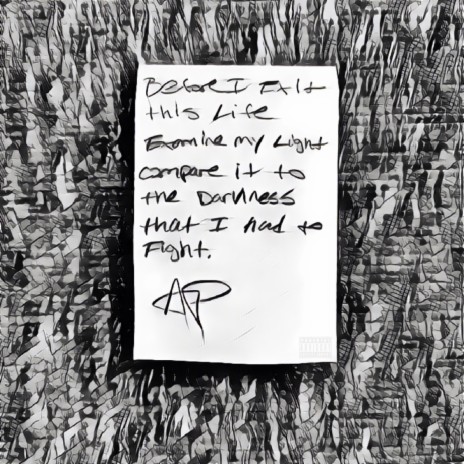 Before I Exit
this Life
Examine my Light
compare it to
the Darkness
that I had to
Fight.
AP